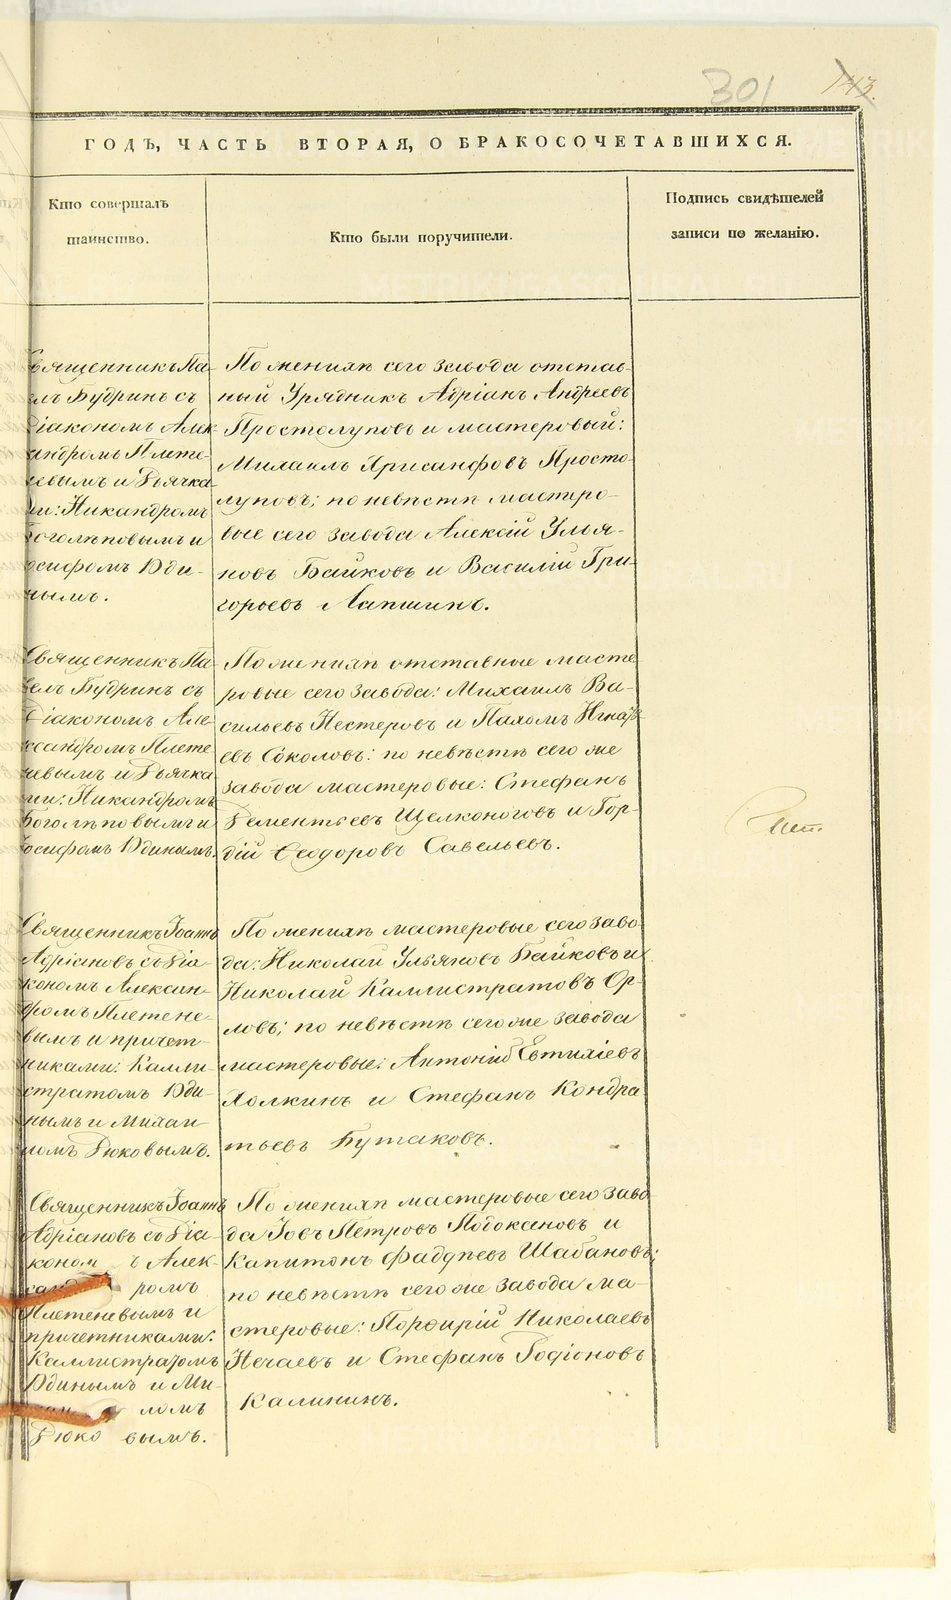 301
143.
ГОДЪ, ЧАСТЬ ВТОРАЯ, О БРАКОСОЧЕТАВШИХСЯ.
Кто совершалъ
таинство.
Кто были поручители.
Подпись свидѣтелей
записи по желанію.
Священникъ Па-
велъ Будринъ съ
Діакономъ Алек
сандромъ Плете-
невымъ и Дьячка-
ми: Никандромъ
Боголѣповымъ и
Іосифомъ Удинымъ.
По женихѣ сего завода отстав-
ный Урядникъ Адріанъ Андреевъ
Простолуповъ и мастеровый:
Михаилъ Хрисанфовъ Просто-
луповъ; по невѣстѣ мастеро-
вые сего завода Алексій Улья-
новъ Байковъ и Василій Гри-
горьевъ Лапшинъ.
Священникъ Па-
велъ Будринъ съ
Діакономъ Але-
ксандромъ Плете
невымъ и Дьячка
ми: Никандромъ
Боголѣповымъ и
Іосифомъ Удинымъ.
По женихѣ отставные масте
ровые сего завода: Михаилъ Ва-
сильевъ Нестеровъ и Пахомъ Игнать
евъ Соколовъ: по невѣстѣ сего же
завода мастеровые: Стефанъ
Дементьевъ Щелконоговъ и Гор-
дій Ѳеодоровъ Савельевъ.
Священникъ Іоаннъ
Адріановъ съ Діа-
кономъ Алексан-
дромъ Плетене-
вымъ и причет-
никами: Калли-
стратомъ Уди-
нымъ и Михаи-
ломъ Дюковымъ.
По женихѣ мастеровые сего заво-
да: Николай Ульяновъ Байковъ и
Николай Каллистратовъ Ор-
ловъ; по невѣстѣ сего же завода
мастеровые: Антоній Евтихіевъ
Холкинъ и Стефанъ Кондра-
тьевъ Бутаковъ.
Священникъ Іоаннъ
Адріановъ со Діа-
кономъ Алек-
сандромъ
Плетеневымъ и
причетниками:
Каллистратомъ
Удинымъ и Ми-
хаиломъ
Дюковымъ.
По женихѣ мастеровые сего заво
да Іовъ Петровъ Подоксеновъ и
Капитонъ Фаддѣевъ Шабановъ;
по невѣстѣ сего же завода ма-
стеровые: Порфирій Николаевъ
Нечаевъ и Стефанъ Родіоновъ
Калининъ.